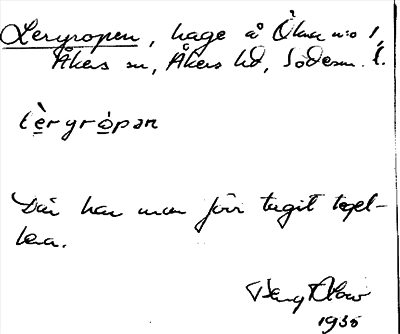 Lergropen, hage å Ökna n:o 1,
Åkers sn, Åkers hd, Söderm. l.
lèrgrópan
Där har man förr tagit tegel-
lera.
Bengt
1935